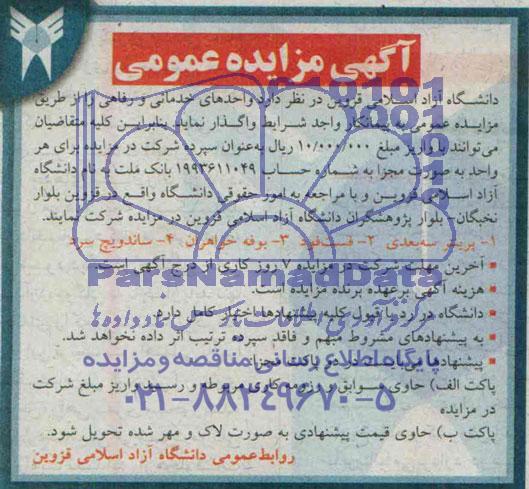 آگهی مزایده عمومی
دانشگاه آزاد اسلامی قزوین در نظر دارد واحدهای خدماتی و رفاهی را از طریق
مزایده عمومی به پیمانکار واجد شرایط واگذار نماید. بنابراین کلیه متقاضیان
می‌توانند با واریز مبلغ ۱۰/۰۰۰/۰۰۰ ریال به‌عنوان سپرده شرکت در مزایده برای هر
واحد به صورت مجزا به شماره حساب ۱۹۹۳۶۱۱۰۴۹ بانک ملت به نام دانشگاه
آزاد اسلامی قزوین و با مراجعه به امور حقوقی دانشگاه واقع در قزوین بلوار
نخبگان- بلوار پژوهشگران دانشگاه آزاد اسلامی قزوین در مزایده شرکت نمایند.
۱- پرینتر سه‌بعدی ۲- فست‌فود ۳- بوفه خواهران ۴- ساندویچ سرد
آخرین مهلت شرکت در مزایده ۷ روز کاری از درج آگهی است.
ParsNamadData
هزینه آگهی برعهده برنده مزایده است.
دانشگاه در رد یا قبول کلیه پیشنهادها اختیار کامل دارد.
به پیشنهادهای مشروط مبهم و فاقد سپرده ترتیب اثر داده نخواهد شد.
پایگاه اطلاع رسانی مناقصه و مزایده
پیشنهادها می‌بایست در دو پاکت مجزا:
پاکت الف) حاوی سوابق و رزومه کاری مربوطه و رسید واریز مبلغ شرکت
۰۲۱-۸۸۳۴۹۶۷۰-۵
در مزایده
پاکت ب) حاوی قیمت پیشنهادی به صورت لاک و مهر شده تحویل شود.
روابط‌عمومی دانشگاه آزاد اسلامی قزوین